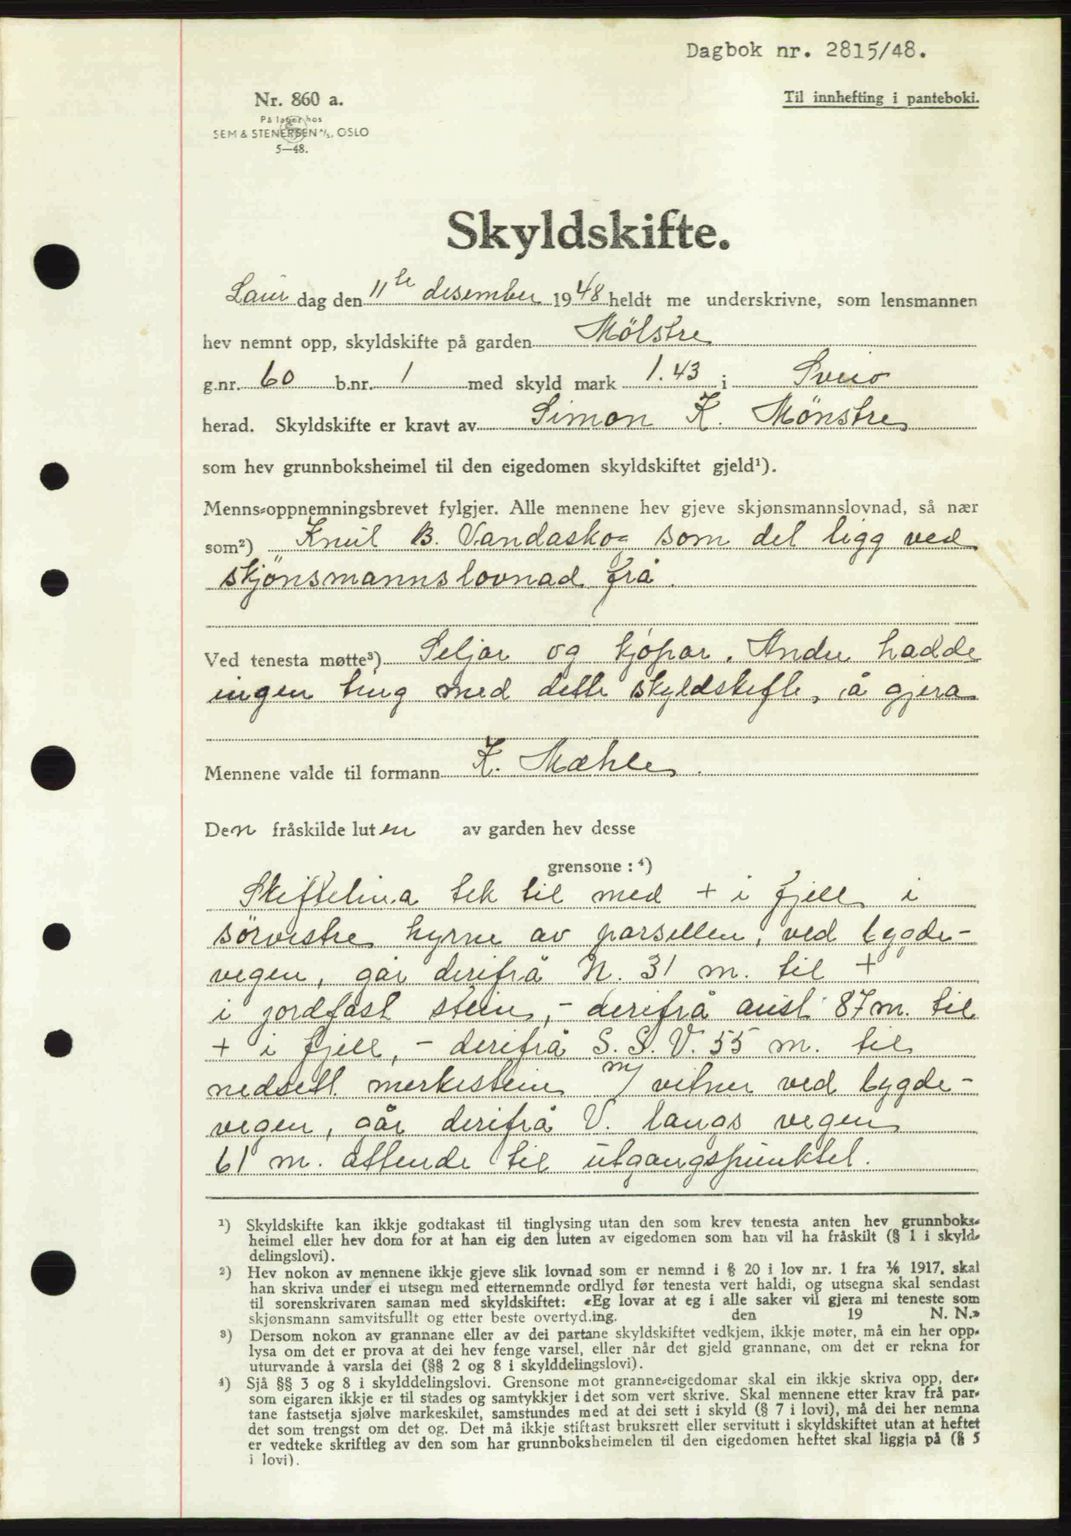 Dagbok nr. 2815/48.
Nr. 860 a.
Til innhefting i panteboki.
På lager hos
SEM & STENERSEN A/S, OSLO
5—48.
Skyldskifte.
Laur dag den 11te desember 1948 heldt me underskrivne, som lensmannen
hev nemnt opp, skyldskifte på garden Mölstre
g.nr. 60 b.nr. 1 med skyld mark 1.43 i Sveio
herad. Skyldskifte er kravt av Simon K. Mönstre
som hev grunnboksheimel til den eigedomen skyldskiftet gjeld¹).
Menns-oppnemningsbrevet fylgjer. Alle mennene hev gjeve skjønsmannslovnad, så nær
som²) Knut B. Vandaskog som det ligg ved
skjönsmannslovnad frå.
Ved tenesta møtte³) Seljar og kjöpar. Andre hadde
ingen ting med dette skyldskifte, å gjera
Mennene valde til formann K. Mæhle.
Den fråskilde luten av garden hev desse
grensone: ⁴)
Skiftelina tek til med + i fjell i
sörvestre hyrne av parsellen, ved bygde-
vegen, går derifrå N. 31 m. til +
i jordfast stein, - derifrå aust 87 m. til
+ i fjell, - derifrå S.S.V. 55 m. til
nedsett merkestein m/ vitner ved bygde-
vegen, går derifrå V. langs vegen
61 m. attende til utgangspunktet.
¹) Skyldskifte kan ikkje godtakast til tinglysing utan den som krev tenesta anten hev grunnboks-
heimel eller hev dom for at han eig den luten av eigedomen som han vil ha fråskilt (§ 1 i skyld-
delingslovi).
²) Hev nokon av mennene ikkje gjeve slik lovnad som er nemnd i § 20 i lov nr. 1 fra 1/6 1917, skal
han skriva under ei utsegn med etternemnde ordlyd før tenesta vert haldi, og utsegna skal sendast
til sorenskrivaren saman med skyldskiftet: «Eg lovar at eg i alle saker vil gjera mi teneste som
skjønsmann samvitsfullt og etter beste overtyd.ing. den 19 N. N.»
³) Dersom nokon av grannane eller av dei partane skyldskiftet vedkjem, ikkje møter, må ein her opp-
lysa om det er prova at dei hev fenge varsel, eller når det gjeld grannane, om det er rekna for
uturvande å varsla dei (§§ 2 og 8 i skylddelingslovi).
⁴) Sjå §§ 3 og 8 i skylddelingslovi. Grensone mot granne-eigedomar skal ein ikkje skriva opp, der-
som eigaren ikkje er til stades og samtykkjer i det som vert skrive. Skal mennene etter krav frå par-
tane fastsetja sjølve markeskilet, samstundes med at dei sett i skyld (§ 7 i lovi), må dei her nemna
det som trengst om det og. Det må ikkje stiftast bruksrett eller servitutt i skyldskiftet utan at heftet
er vedteke skriftleg av den som har grunnboksheimelen til den eigedomen heftet skal liggja på (§ 5
i lovi).